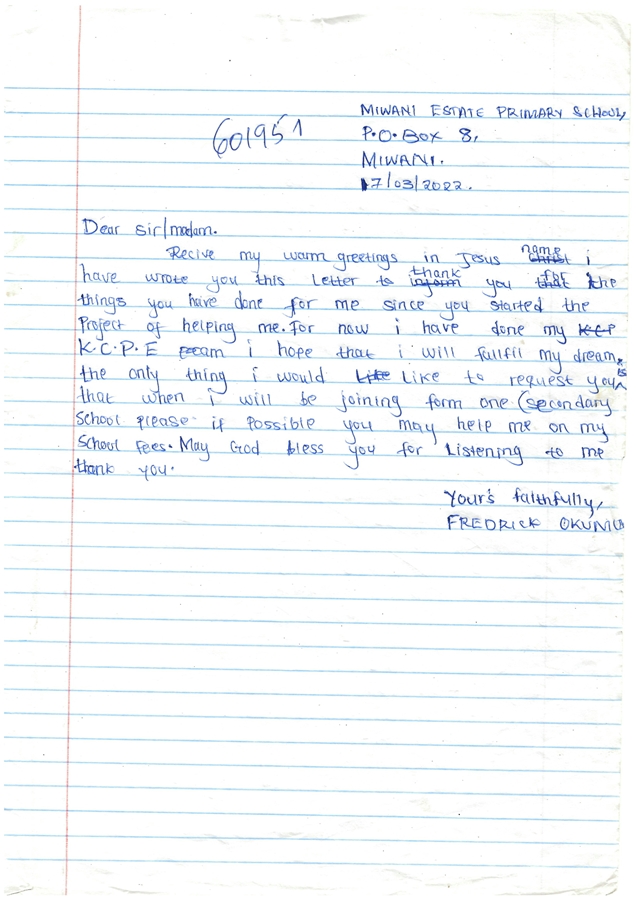 MIWANI ESTATE PRIMARY SCHOOL,
601951
P.O.BOX 8,
MIWANI.
17/03/2022.
Dear Sir/madam.
Recive my warm greetings in Jesus name i
have wrote you this Letter to thank you for the
things you have done for me since you started the
Project of helping me. For now i have done my
K.C.P.E exam i hope that i will fullfil my dream.
the only thing i would Like to request you is
that when i will be joining form one (secondary
School please if Possible you may help me on my
School Fees. May God bless you for Listening to me
thank you.
Your's faithfully,
FREDRICK